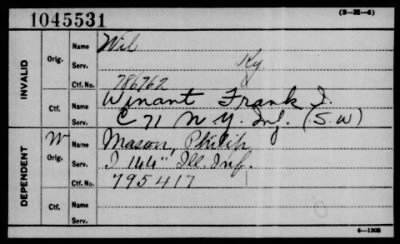 1045531
(3-22-4)
INVALID
Orig.
Name
Wil
Serv.
Ky
Ctf. No.
786762
Ctf.
Name
Winant Frank I.
Serv.
C 71 N.Y. Inf. (S.W)
DEPENDENT
W
Orig.
Name
Mason, Philip
Serv.
I 144" Ill. Inf.
Ctf. No.
795417
Ctf.
Name
Serv.